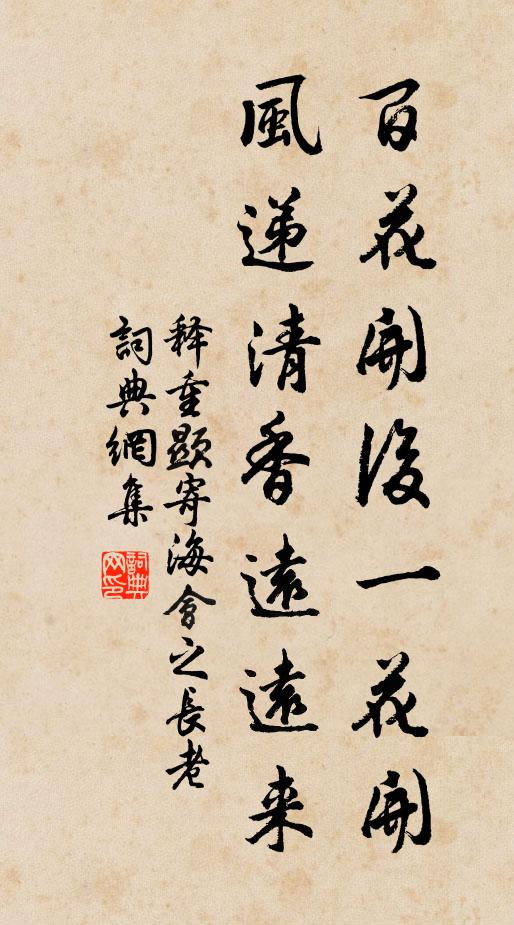 百花開後一花開
風遞清香遠遠来
释重顯寄海會之長老
詞典網集
詞典網印